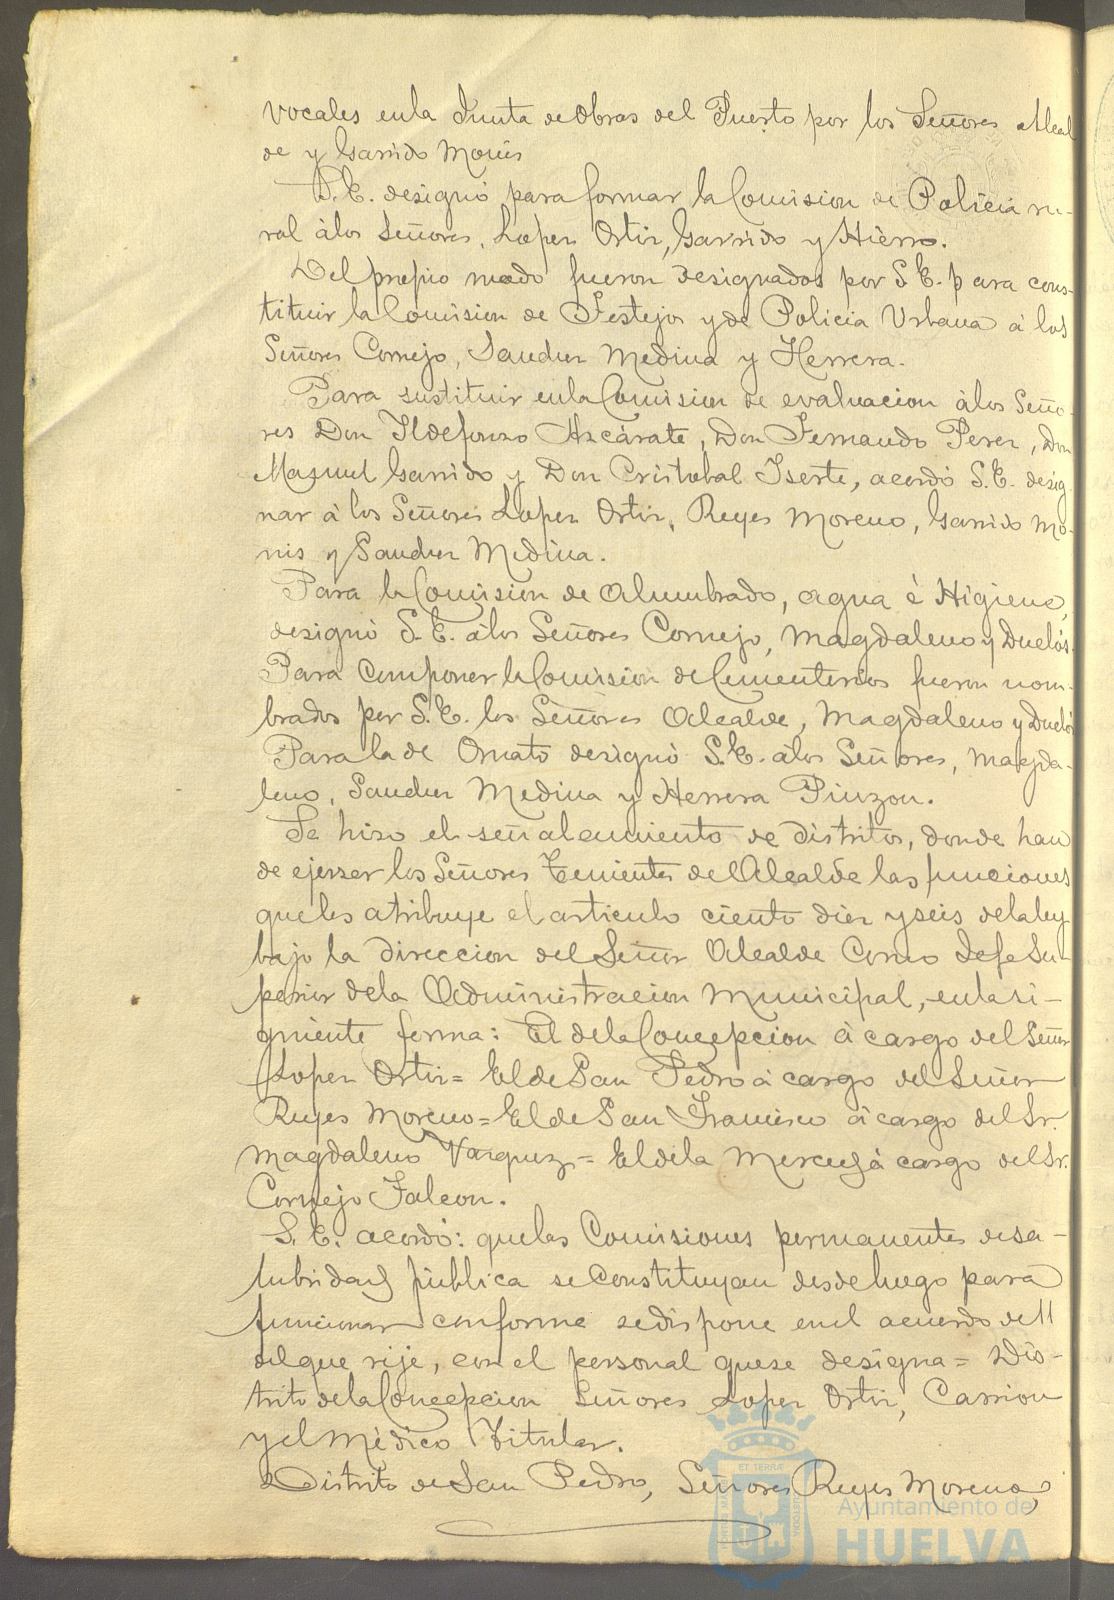 vocales enla Junta de Obras del Puerto por los Señores Alcal
de y Garrido Monis
S.E. designó para formar la Comision de Policia ru-
ral à los Señores, Lopez Ortiz, Garrido y Hierro.
Del propio modo fueron designados por S.E. para cons-
tituir la Comision de Festejos y de Policia Urbana à los
Señores Cornejo, Sanchez Medina y Herrera.
Para sustituir enla Comision de evaluacion àlos Seño-
res Don Ildefonso Azcárate, Don Fernando Perez, Don
Manuel Garrido y Don Cristobal Iserte, acordó S.E. desig-
nar à los Señores Lopez Ortiz, Reyes Moreno, Garrido Mo-
nis y Sanchez Medina.
Para la Comision de Alumbrado, agua é Higiene,
designó S.E. àlos Señores Cornejo, Magdaleno y Duelos.
Para componer la Comision de Cementerios fueron nom-
brados por S.E. los Señores Alcalde, Magdaleno y Duelos
Para la de Ornato designó S.E. àlos Señores, Magda-
leno, Sanchez Medina y Herrera Pinzon.
Se hizo el señalamiento de distritos, donde han
de ejerzer los Señores Tenientes de Alcalde las funciones
que les atribuye el articulo ciento diez y seis dela ley
bajo la direccion del Señor Alcalde Como Jefe Su-
perior dela Administracion Municipal, enla si-
guiente forma: El dela Concepcion à cargo del Señor
Lopez Ortiz= El de San Pedro à cargo del Señor
Reyes Moreno= El de San Francisco à cargo del Sr.
Magdaleno Vazquez= El dela Merced à cargo del Sr.
Cornejo Falcon.
S.E. acordó: que las Comisiones permanentes desa-
lubridad pública se Constituyan desde luego para
funcionar conforme se dispone en el acuerdo de 11
del que rije, con el personal que se designa= Dis-
trito dela Concepcion Señores Lopez Ortiz, Carrion
y el Médico Titular.
Distrito de San Pedro, Señores Reyes Moreno,
Ayuntamiento de
HUELVA